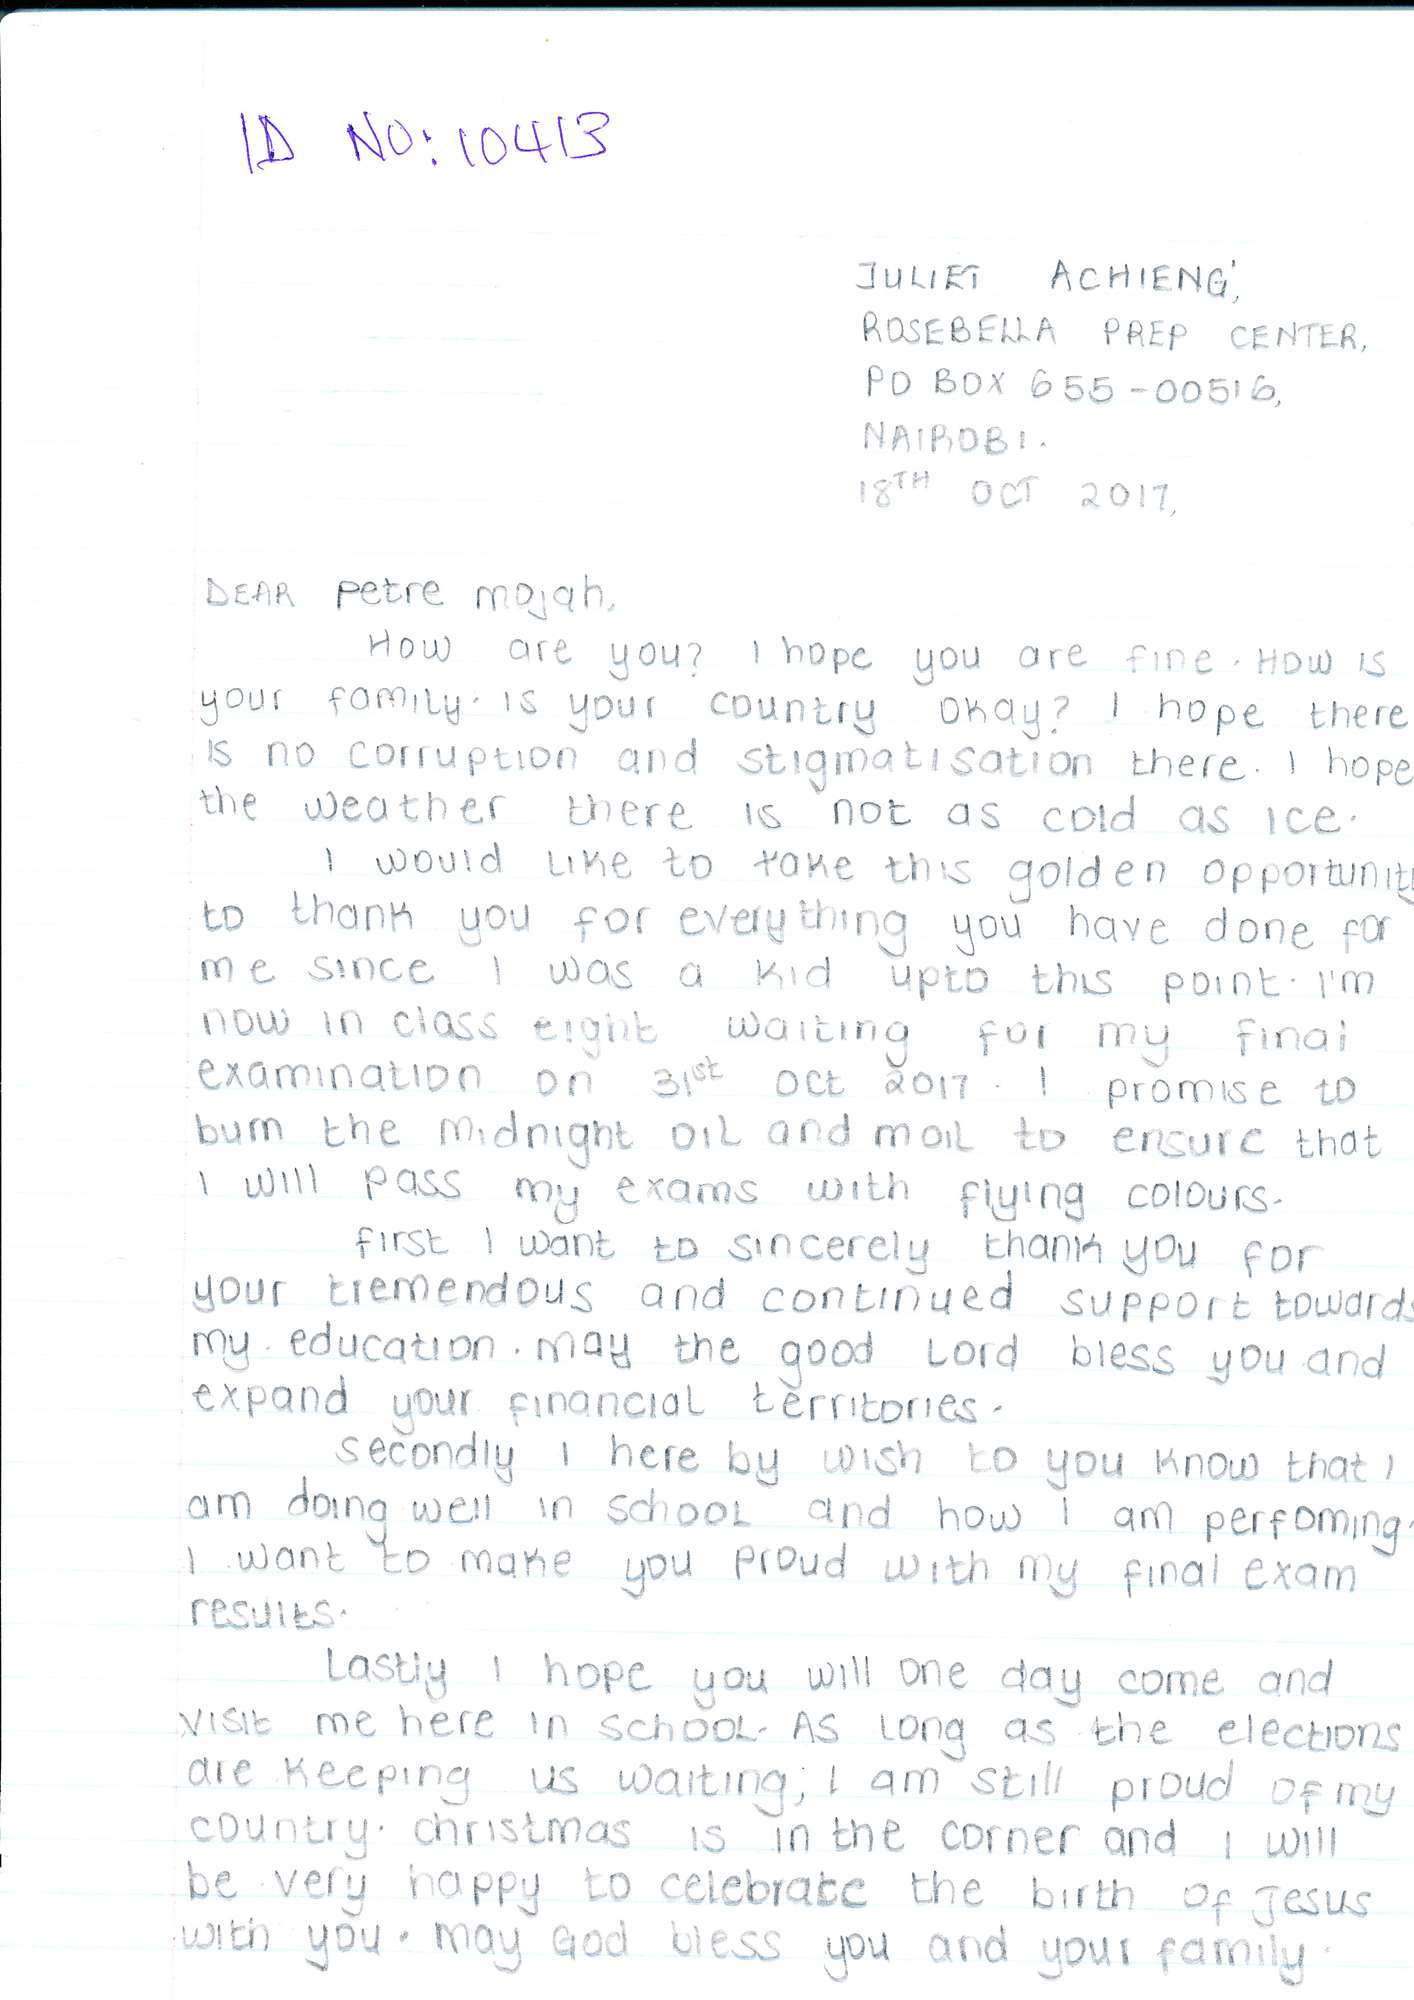 ID NO: 10413
JULIET ACHIENG',
ROSEBELLA PREP CENTER,
PO BOX 655-00516,
NAIROBI.
18TH OCT 2017,
DEAR Petre Mojah,
How are you? I hope you are fine. How is
your family. Is your country okay? I hope there
is no corruption and stigmatisation there. I hope
the weather there is not as cold as ice.
I would like to take this golden opportunity
to thank you for everything you have done for
me since I was a kid upto this point. I'm
now in class eight waiting for my final
examination on 31st Oct 2017. I promise to
burn the midnight oil and moil to ensure that
I will pass my exams with flying colours.
First I want to sincerely thank you for
your tremendous and continued support towards
my education. May the good Lord bless you and
expand your financial territories.
Secondly I here by wish to you know that I
am doing well in school and how I am perfoming.
I want to make you proud with my final exam
results.
Lastly I hope you will one day come and
visit me here in school. As long as the elections
are keeping us waiting, I am still proud of my
country. Christmas is in the corner and I will
be very happy to celebrate the birth of Jesus
with you. May God bless you and your family.